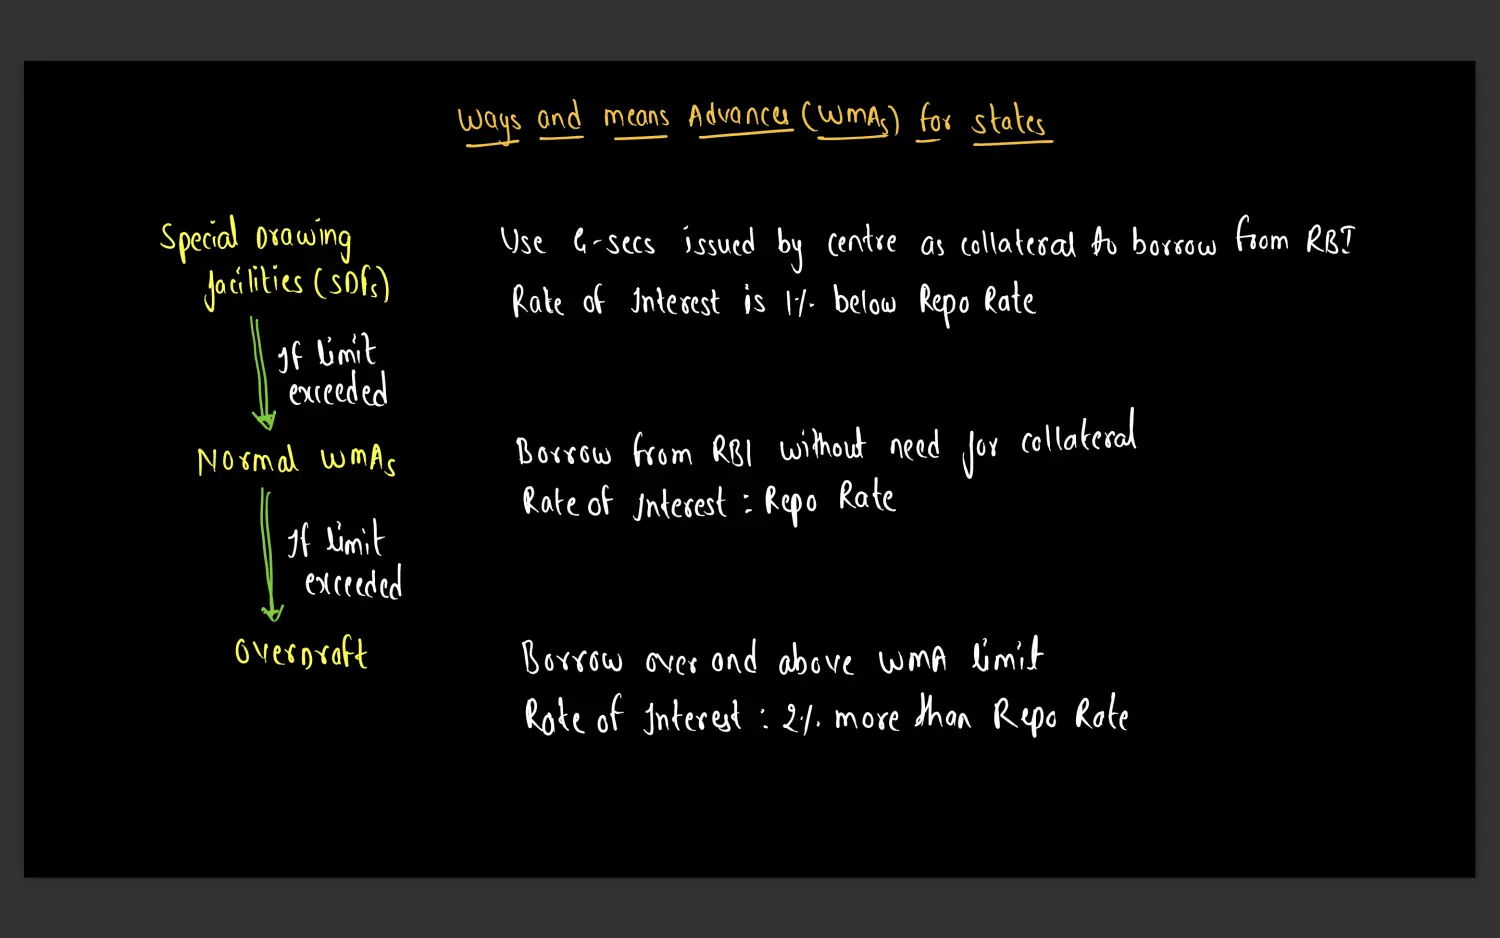 Ways and means Advances (WMAs) for states
Special Drawing
facilities (SDFs)
Use G-secs issued by centre as collateral to borrow from RBI
Rate of Interest is 1% below Repo Rate
If limit
exceeded
Normal WMAs
Borrow from RBI without need for collateral
Rate of Interest : Repo Rate
If limit
exceeded
Overdraft
Borrow over and above WMA limit
Rate of Interest : 2% more than Repo Rate